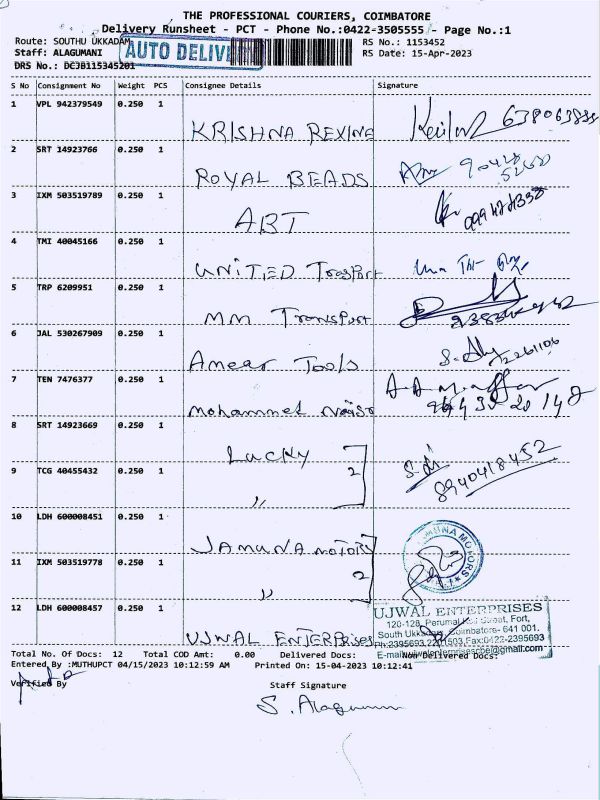 THE PROFESSIONAL COURIERS, COIMBATORE
Delivery Runsheet - PCT - Phone No.:0422-3505555 - Page No.:1
Route: SOUTHU UKKADAM
RS No.: 1153452
Staff: ALAGUMANI
AUTO DELIVE
RS Date: 15-Apr-2023
DRS No.: DCJB115345201
S No Consignment No Weight PCS Consignee Details Signature
1 VPL 942379549 0.250 1
KRISHNA REXINE
2 SRT 14923766 0.250 1
ROYAL BEADS
3 IXM 503519789 0.250 1
ABT
4 TMI 40045166 0.250 1
UNITED Trasport
5 TRP 6209951 0.250 1
MM Transport
6 JAL 530267909 0.250 1
Ameer Tools
7 TEN 7476377 0.250 1
Mohammet
8 SRT 14923669 0.250 1
Lucky
9 TCG 40455432 0.250 1
2
〃
8940418452
10 LDH 600008451 0.250 1
JAMUNA MOTORS
11 IXM 503519778 0.250 1
2
〃
JAMUNA MOTORS
12 LDH 600008457 0.250 1
UJWAL ENTERPRISES
UJWAL ENTERPRISES
120-128, Perumal Street, Fort,
South Ukkadam, Coimbatore- 641 001.
Ph:2395693, Fax:0422-2395693
Total No. Of Docs: 12 Total COD Amt: 0.00 Delivered Docs: Non Delivered Docs:
Entered By :MUTHUPCT 04/15/2023 10:12:59 AM Printed On: 15-04-2023 10:12:41
Verified By
Staff Signature
S. Alagumani